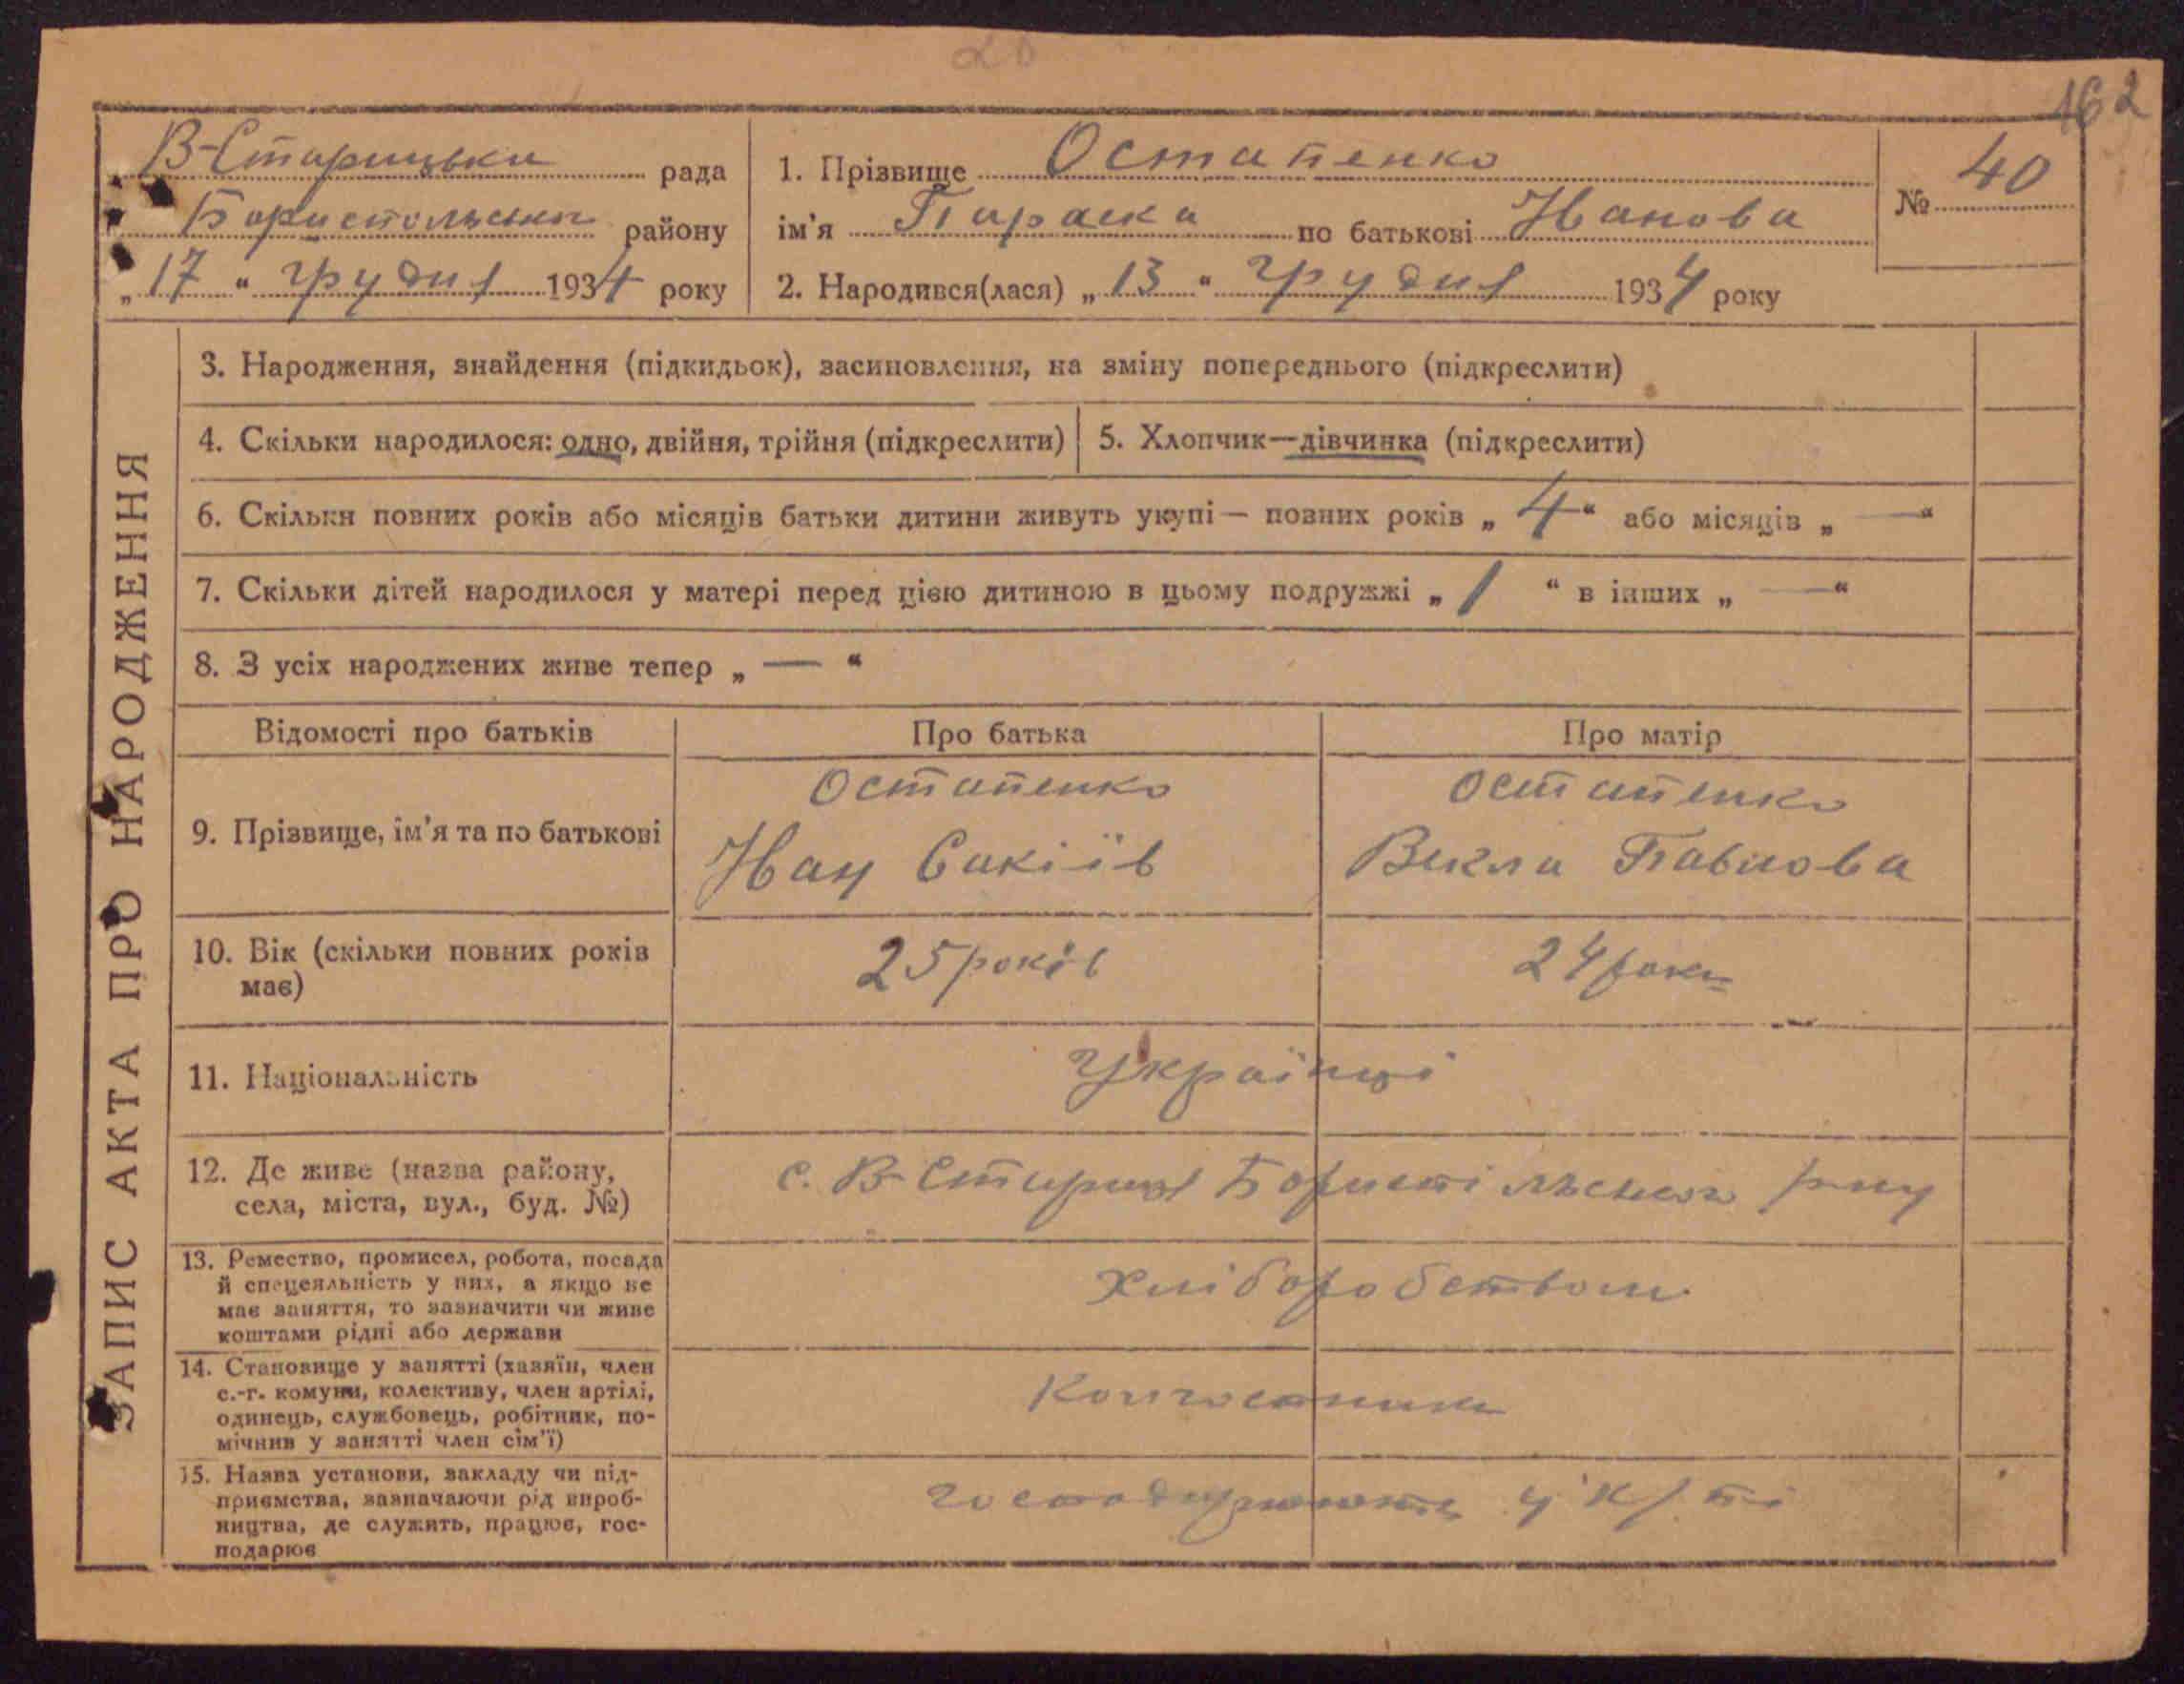 20
162
В-Старицька рада
Бориспольськ району
„17“ грудня 1934 року
1. Прізвище Остапенко
ім'я Параска по батькові Иванова
2. Народився(лася) „13“ грудня 1934 року
№ 40
ЗАПИС АКТА ПРО НАРОДЖЕННЯ
3. Народження, знайдення (підкидьок), засиновлення, на зміну попереднього (підкреслити)
4. Скільки народилося: одно, двійня, трійня (підкреслити)
5. Хлопчик—дівчинка (підкреслити)
6. Скільки повних років або місяців батьки дитини живуть укупі — повних років „4“ або місяців „—“
7. Скільки дітей народилося у матері перед цією дитиною в цьому подружжі „1“ в інших „—“
8. З усіх народжених живе тепер „—“
Відомості про батьків
Про батька
Про матір
9. Прізвище, ім'я та по батькові
Остапенко
Иван Сакіїв
Остапенко
Векла Павлова
10. Вік (скільки повних років
має)
25 років
24 роки
11. Національність
Українці
12. Де живе (назва району,
села, міста, вул., буд. №)
с. В-Стариця Бориспільського р-ну
13. Ремество, промисел, робота, посада
й спецеяльність у них, а якщо не
має заняття, то зазначити чи живе
коштами рідні або держави
Хліборобством
14. Становище у занятті (хазяїн, член
с.-г. комуни, колективу, член артілі,
одинець, службовець, робітник, по-
мічнив у занятті член сім'ї)
Колгоспники
15. Назва установи, закладу чи під-
приємства, зазначаючи рід вироб-
ництва, де служить, працює, гос-
подарює
господарюють у к/ті